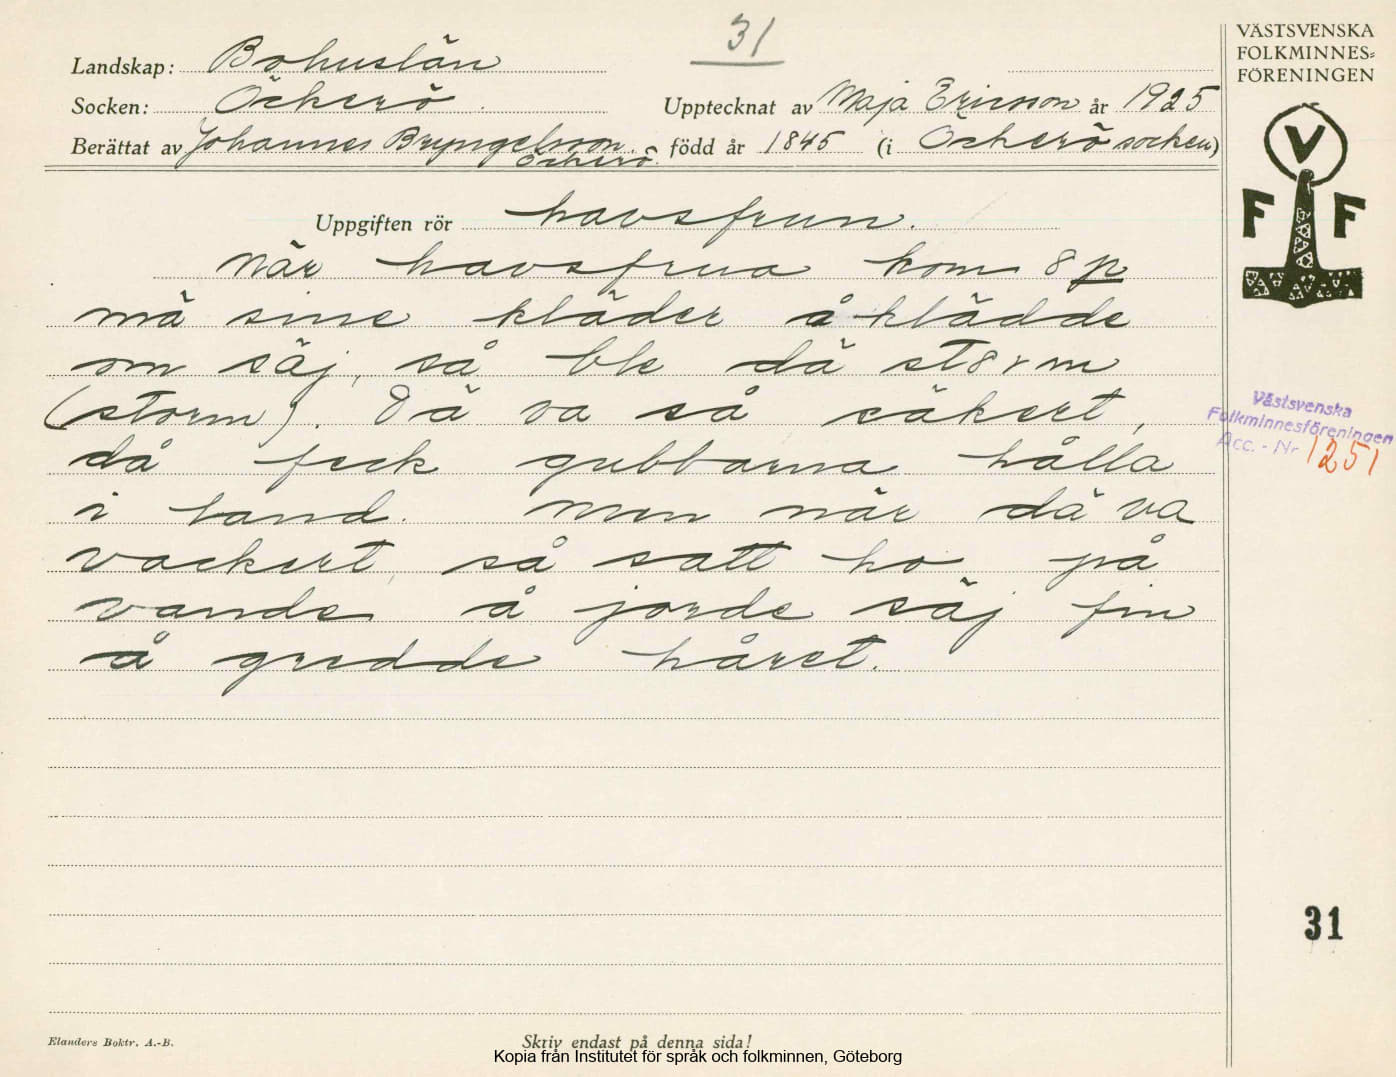 31
VÄSTSVENSKA
FOLKMINNES=
FÖRENINGEN
Landskap: Bohuslän
Socken: Öckerö
Upptecknat av Maja Ericsson år 1925
Berättat av Johannes Bryngelsson född år 1845 (i Öckerö socken)
Öckerö
V
F F
Uppgiften rör havsfrun.
När havsfrua kom 8p
mä sine kläder å klädde
om säj, så ble dä st8rm
(storm). Dä va så säkert,
då feck gubbarna hålla
i land. Men när dä va
vackert, så satt ho på
vande å jorde säj fin
å gredde håret.
Västsvenska
Folkminnesföreningen
Acc. - Nr 1251
31
Elanders Boktr. A.-B.
Skriv endast på denna sida!
Kopia från Institutet för språk och folkminnen, Göteborg